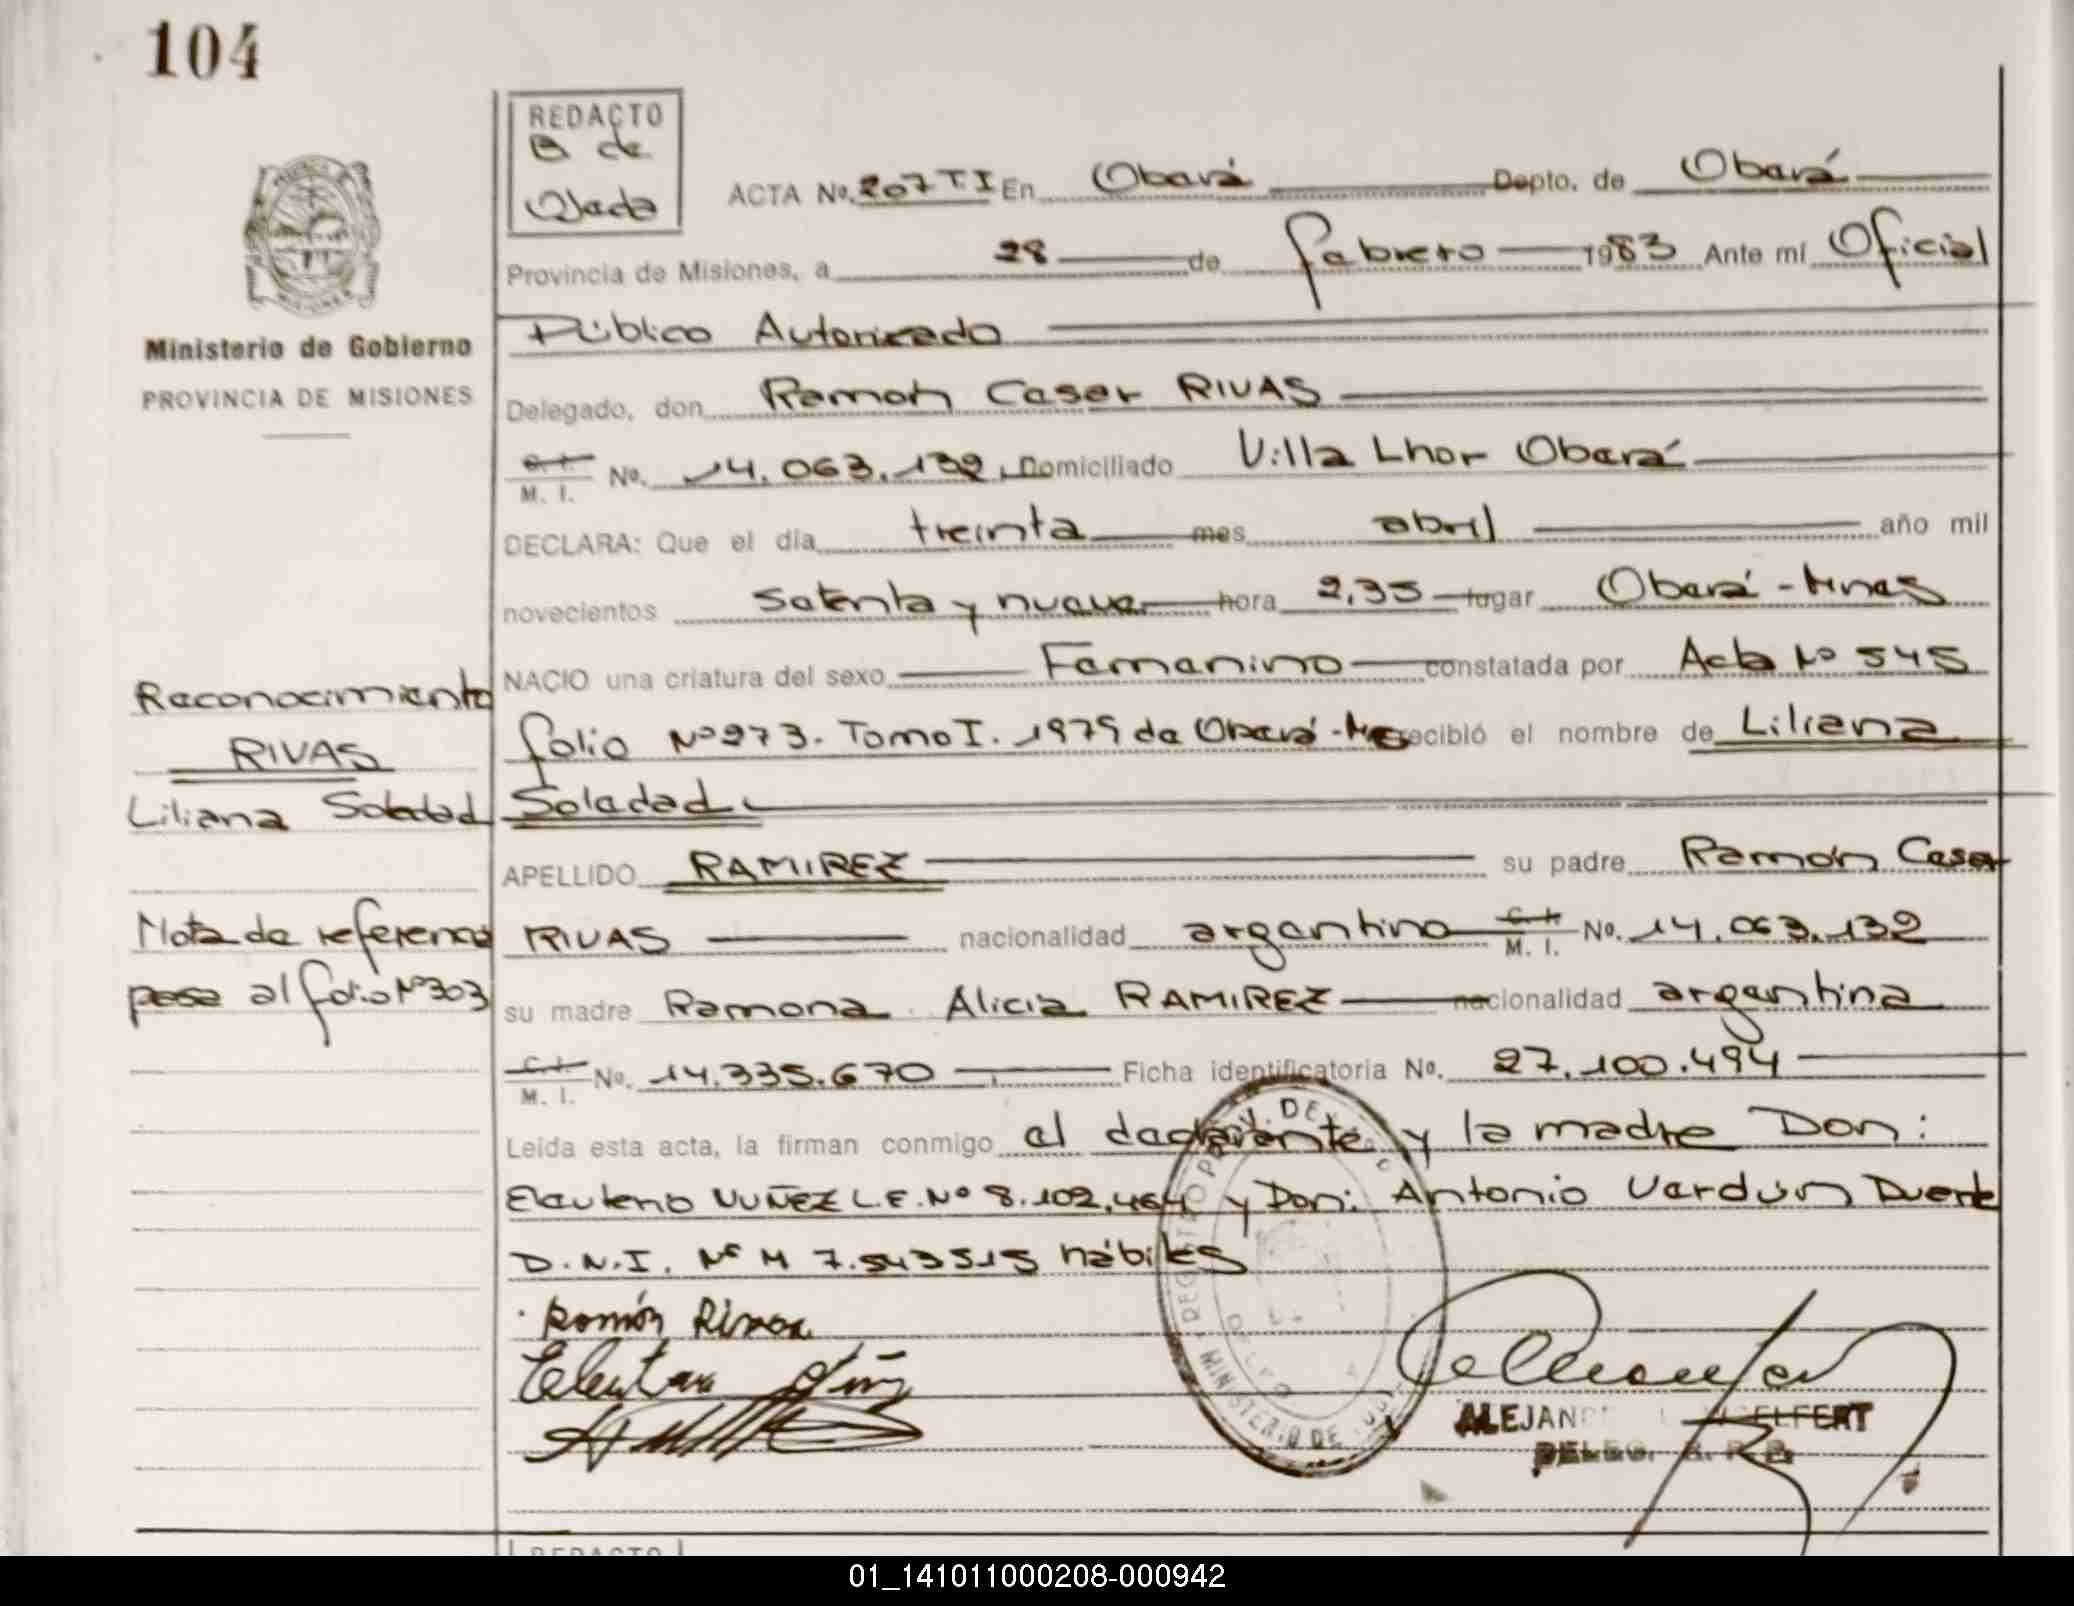 104
REDACTO
B de
ACTA No. 207 T.I En Oberá Depto. de Oberá
Provincia de Misiones, a 28 de febrero 1983 Ante mí Oficial
Público Autorizado
Delegado, don Ramón Cesar RIVAS
C. I.
M. I. No. 14.063.132 Domiciliado Villa Lhor Oberá
DECLARA: Que el día treinta mes abril año mil
novecientos setenta y nueve hora 2,35 lugar Oberá - Mnes
NACIO una criatura del sexo Femenino constatada por Acta Nº 545
folio Nº 273. Tomo I. 1979 de Oberá - recibió el nombre de Liliana
Soledad
APELLIDO RAMIREZ su padre Ramón Cesar
RIVAS nacionalidad argentino C. I. M. I. No. 14.063.132
su madre Ramona Alicia RAMIREZ nacionalidad argentina
C. I.
M. I. No. 14.335.670 Ficha identificatoria No. 27.100.494
Leída esta acta, la firman conmigo el declarante y la madre Don:
Eleuterio NUÑEZ L.E. Nº 8.102.464 y Don: Antonio Verdún Duerte
D.N.I. Nº M 7.543515 hábiles
Ramón Rivas
ALEJAN
DELEG. S. R. P.
Ministerio de Gobierno
PROVINCIA DE MISIONES
Reconocimiento
RIVAS
Liliana Soledad
Nota de referencia
pasa al folio Nº 303
MINISTERIO DE
REDACTO
01_141011000208-000942